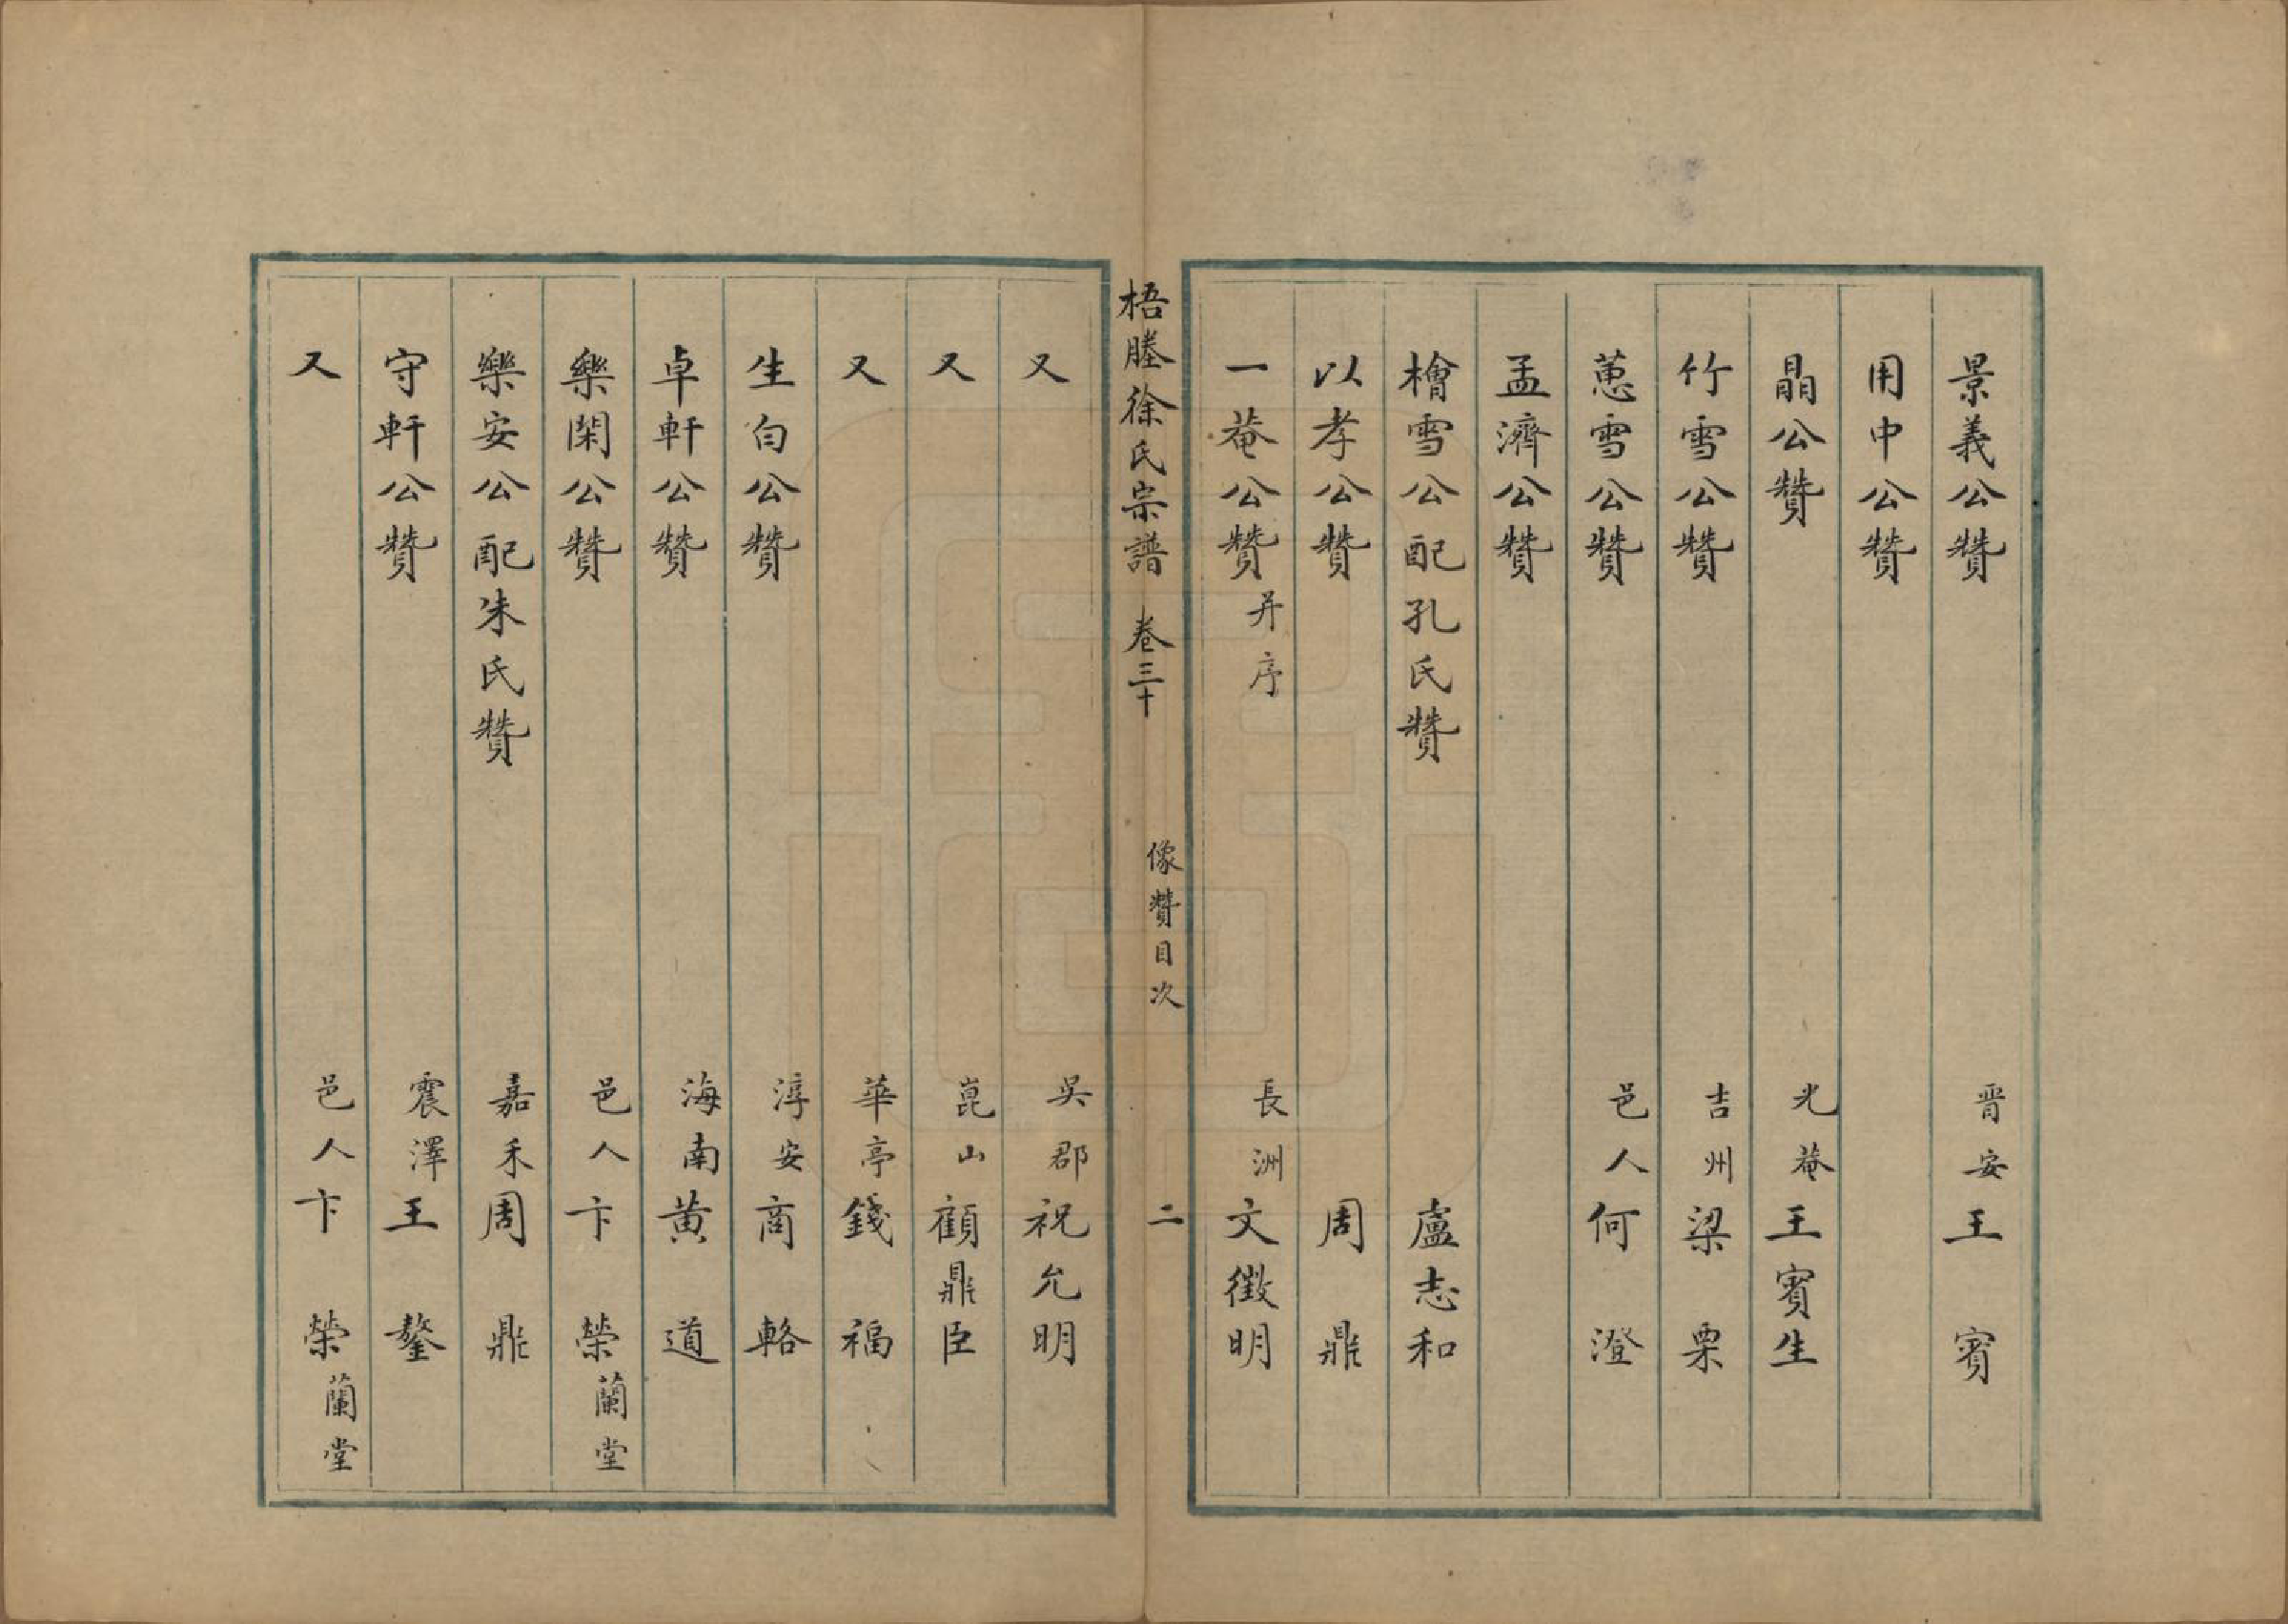 景義公贊 晋安王賓
用中公贊
晶公贊 光菴王賓生
竹雪公贊 吉州梁栗
蒽雪公贊 邑人何澄
孟濟公贊
檜雪公配孔氏贊 盧志和
以孝公贊 周鼎
一菴公贊并序 長洲文徵明
梧塍徐氏宗譜 卷三十 像贊目次 二
又 吳郡祝允明
又 崑山顧鼎臣
又 華亭錢福
生白公贊 淳安商輅
卓軒公贊 海南黄道
樂閑公贊 邑人卞榮蘭堂
樂安公配朱氏贊 嘉禾周鼎
守軒公贊 震澤王鏊
又 邑人卞榮蘭堂